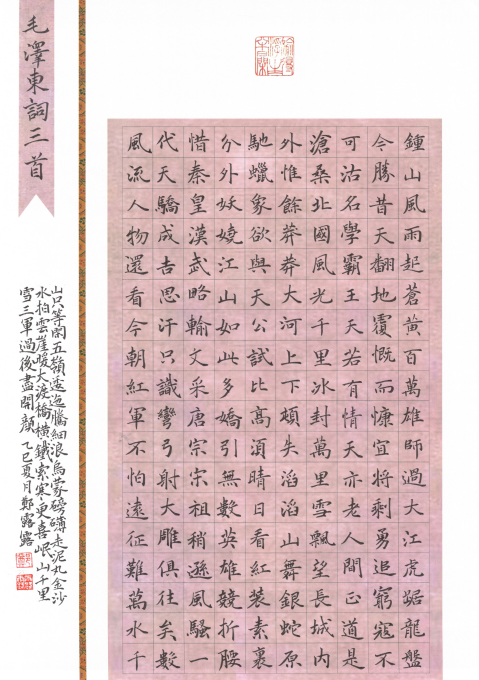 鍾山風雨起蒼黃百萬雄師過大江虎踞龍盤
今勝昔天翻地覆慨而慷宜將剩勇追窮寇不
可沽名學霸王天若有情天亦老人間正道是
滄桑北國風光千里冰封萬里雪飄望長城內
外惟餘莽莽大河上下頓失滔滔山舞銀蛇原
馳蠟象欲與天公試比高湏晴日看紅裝素裹
分外妖嬈江山如此多嬌引無數英雄競折腰
惜秦皇漢武略輸文采唐宗宋祖稍遜風騷一
代天驕成吉思汗只識彎弓射大雕俱往矣數
風流人物還看今朝紅軍不怕遠征難萬水千
毛澤東詞三首
山只等閑五嶺逶迤騰細浪烏蒙磅礴走泥丸金沙
水拍雲崖暖大渡橋橫鐵索寒更喜岷山千里
雪三軍過後盡開顏 乙巳夏月鄭露露